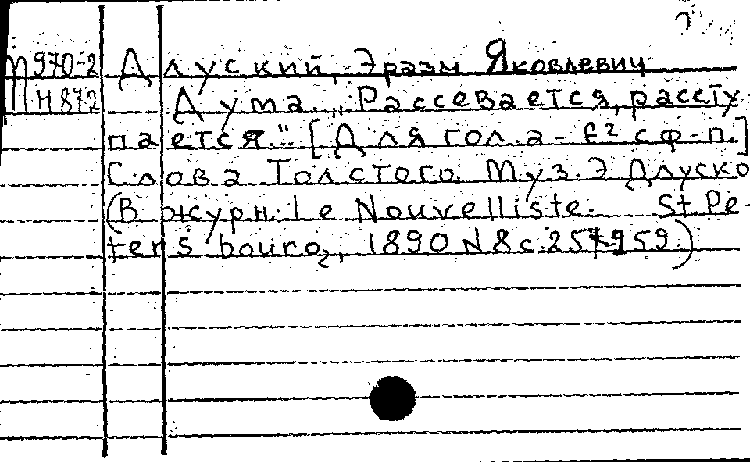 П970-2 Длуский, Эразм Яковлевич
Н872 Дума. „Рассевается, рассту-
пается." [Для гол. a-f² с ф-п.]
Слова Толстого. Муз. Э Длуско
(В журн. Le Nouvelliste. St. Pe-
tersbourg, 1890 N 8 с.